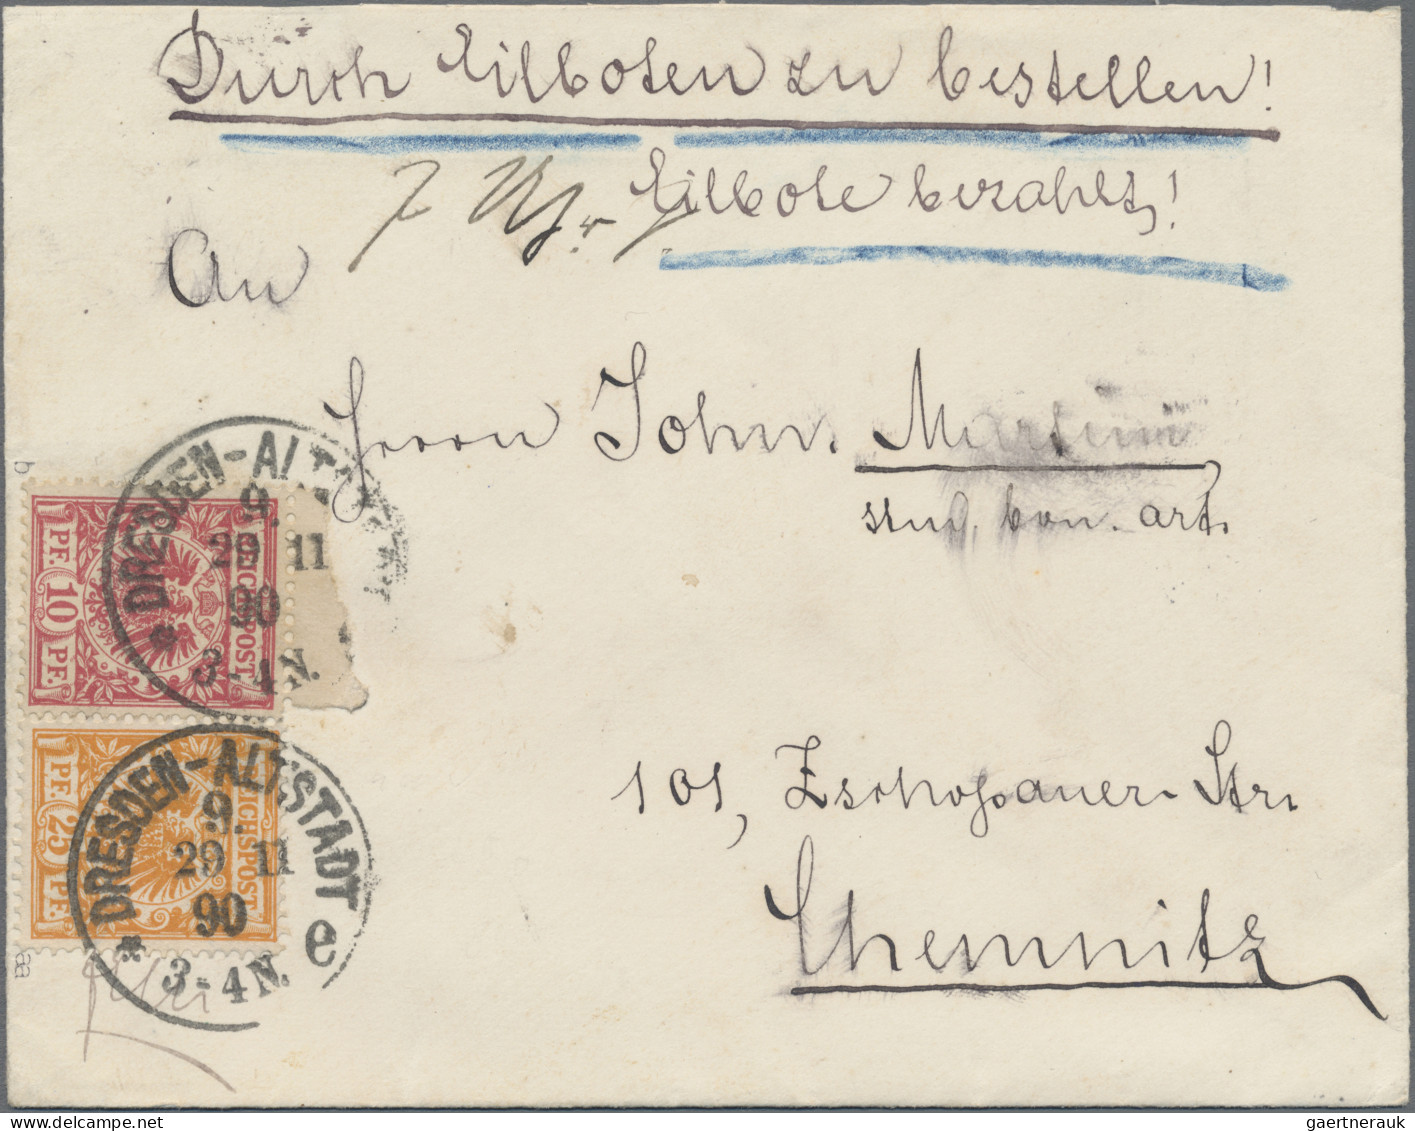 Durch Eilboten zu bestellen!
7 Uhr Eilbote bezahlt!
An
Herrn John. Martini
stug. bon. art.
101, Zschopauer Str.
Chemnitz
b
DRESDEN-ALTSTADT
9.
29 11
90
3-4 N.
REICHSPOST
PF. 10 PF.
DRESDEN-ALTSTADT
9.
29 11
90
3-4 N. e
REICHSPOST
PF. 25 PF.
aa
gaertnerauk